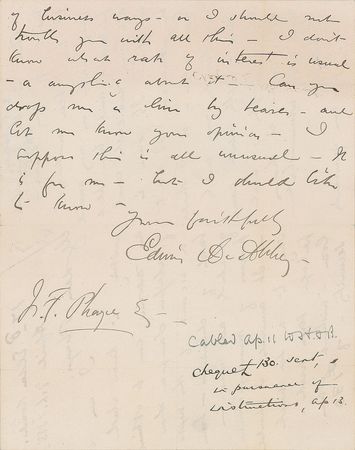 of business ways - or I should not
trouble you with all this - I don't
know what rate of interest is usual
- or anything about it - Can you
drop me a line by bearer - and
let me know your opinion - I
suppose this is all unusual - It
is for me - but I should like
to know -
Yours faithfully
Edwin A. Abbey -
J. F. Phayre Esq -
Cabled Ap. 11
cheque 130. sent,
in pursuance of
instructions, Ap 13.